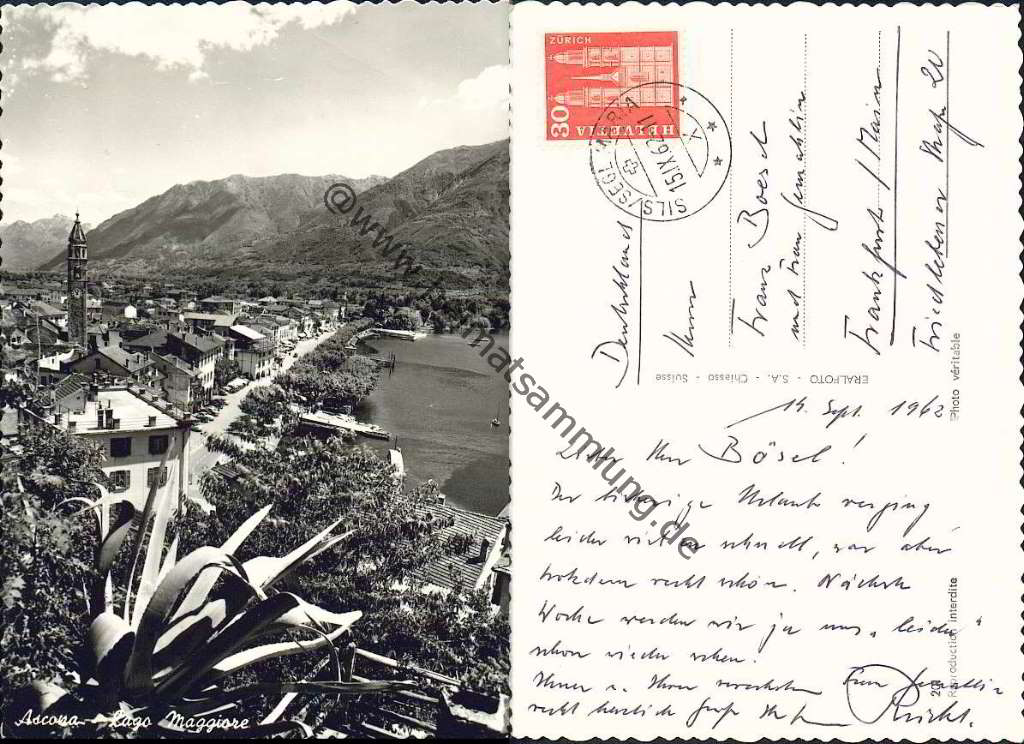 Ascona - Lago Maggiore
ZÜRICH
30
HELVETIA
SILS/SEGL
15.IX.62-11
Deutschland
Herrn
Franz Boesel
und Frau Gemahlin
Frankfurt / Main
Friedlebener
20
ERALFOTO - S.A. - Chiasso - Suisse
Photo véritable
Reproduction interdite
14. Sept. 1962
Lieber Herr Bösel!
Der bisherige Urlaub verging
leider viel zu schnell, war aber
trotzdem recht schön. Nächste
Woche werden wir ja uns „leider“
schon wieder sehen.
Ihnen u. Ihrer verehrten Frau Gemahlin
recht herzliche Grüße Ihr
@www.
matsammlung.de